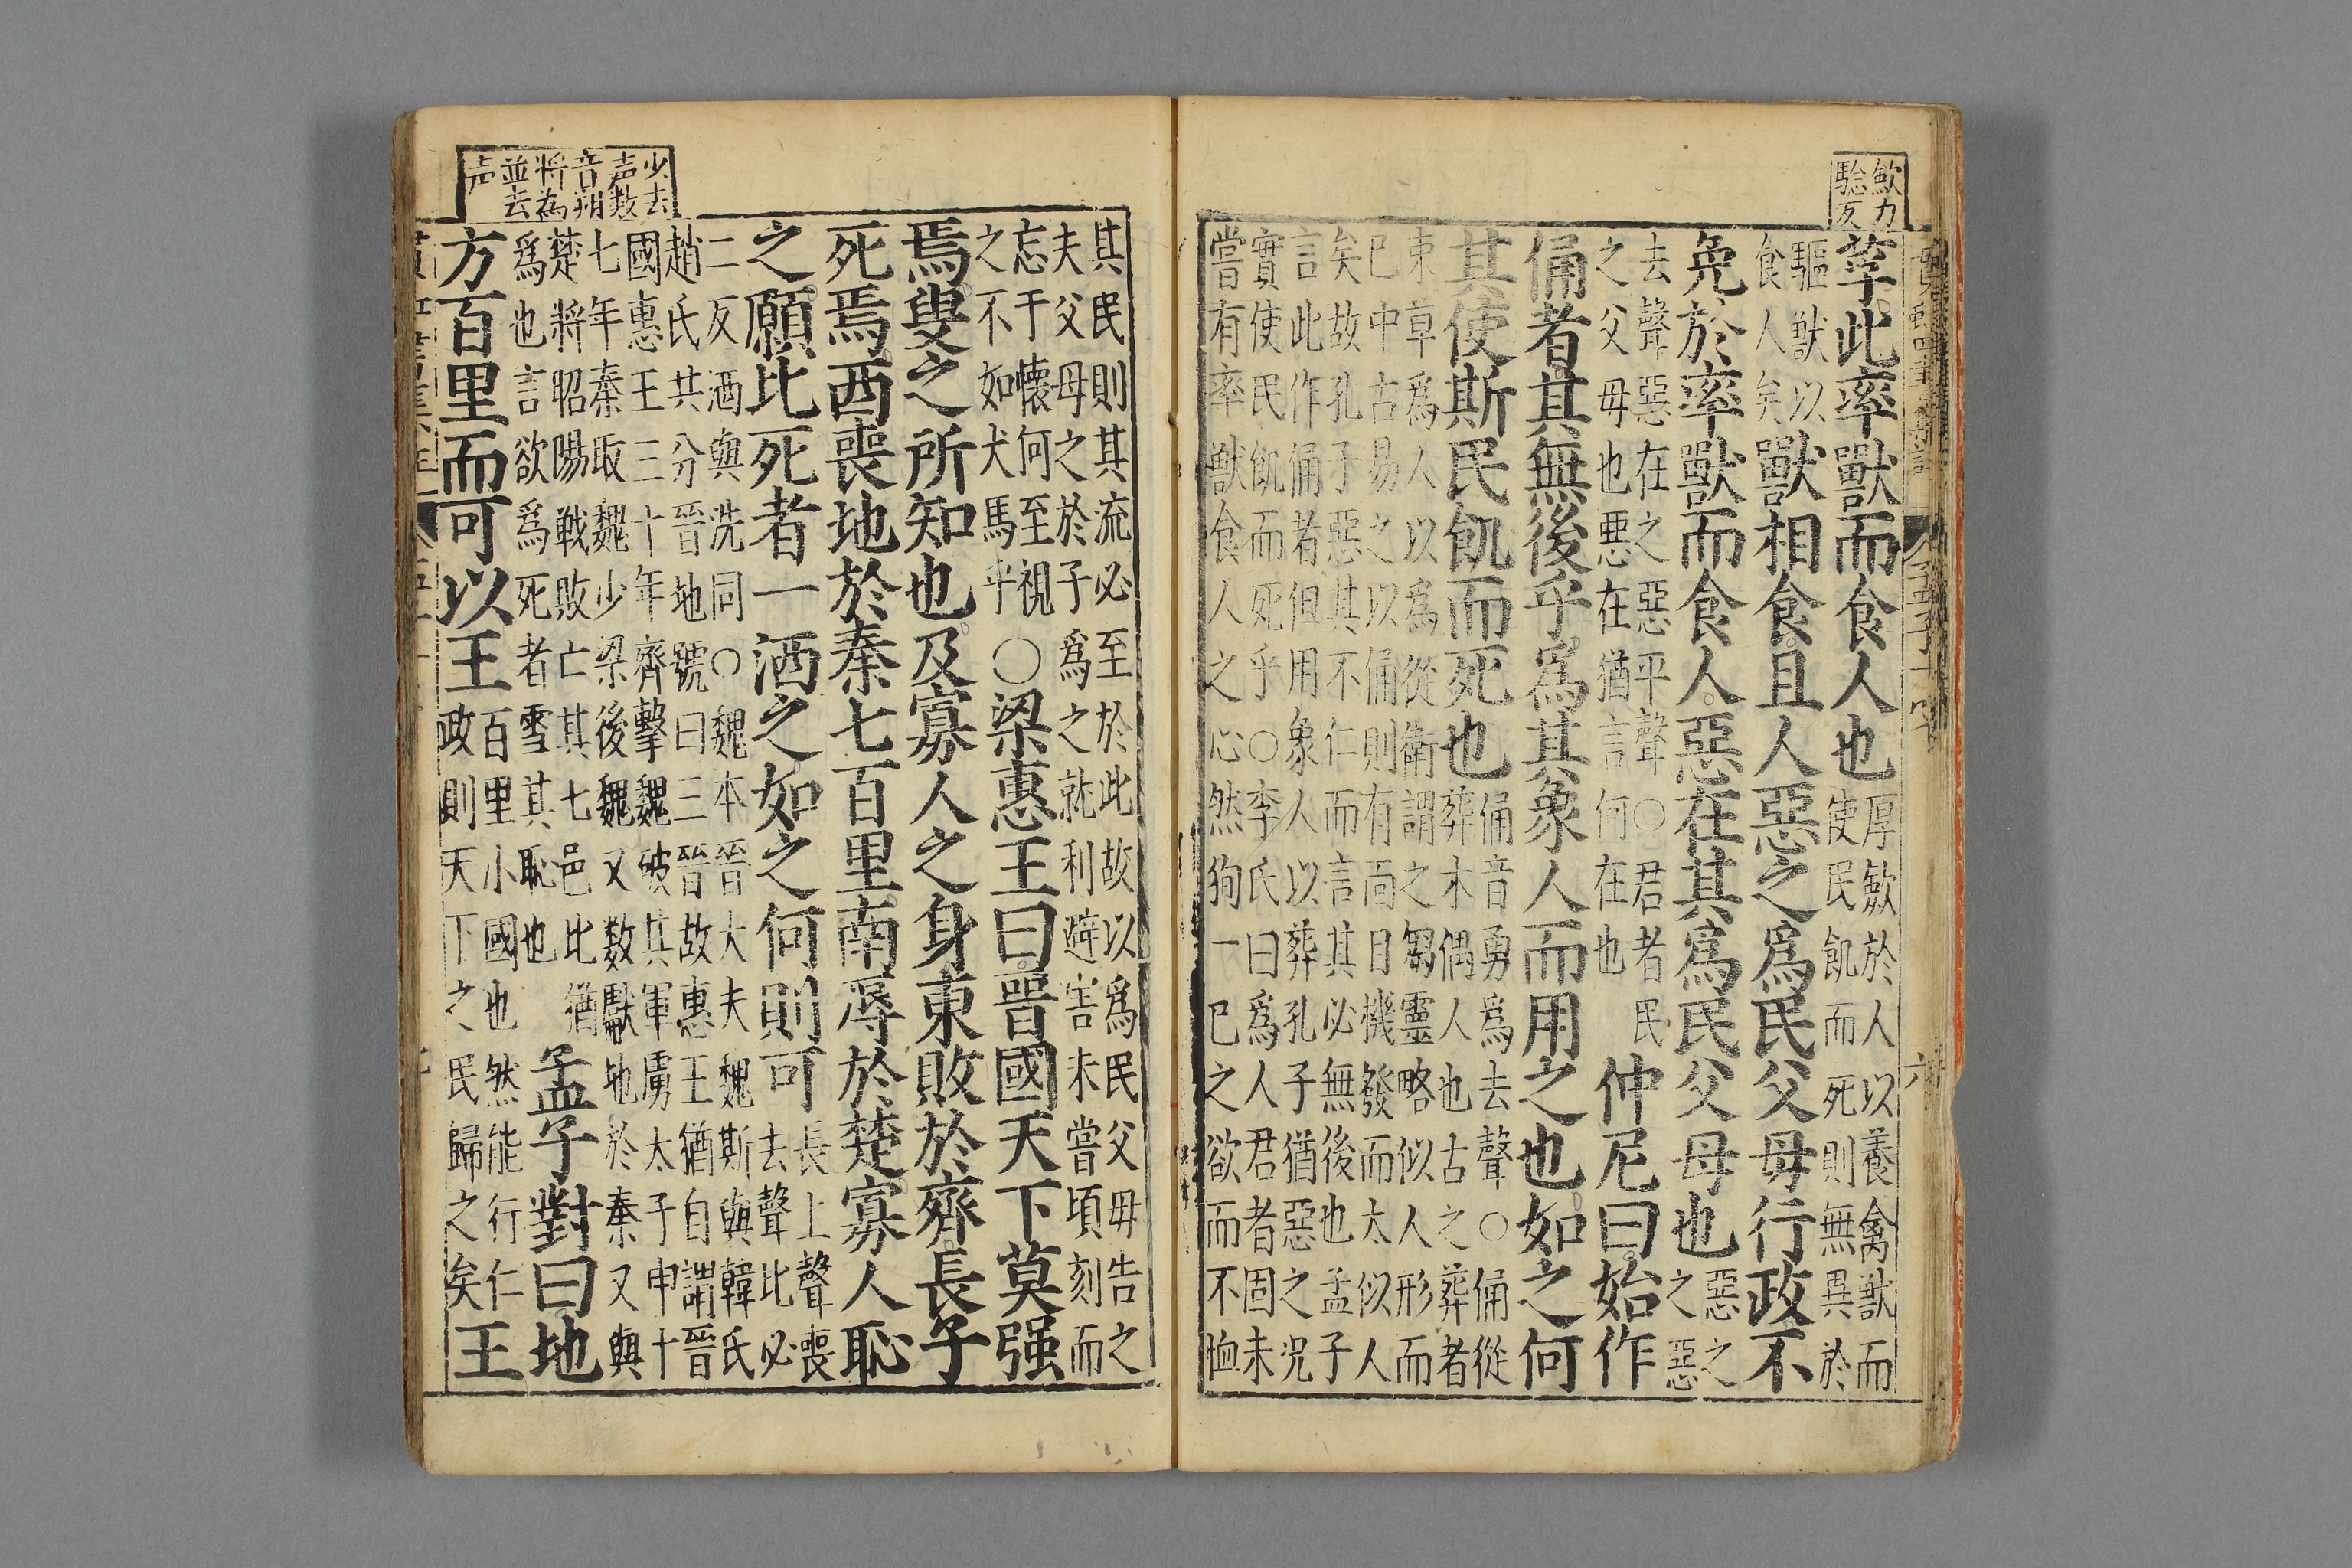 歛力
騐反
莩此率獸而食人也
厚歛於人以養禽獸而
使民飢而死則無異於
驅獸以
食人矣
獸相食且人惡之爲民父母行政不
免於率獸而食人惡在其爲民父母也
惡之
之惡
去聲惡在之惡平聲○君者民
之父母也惡在猶言何在也
仲尼曰始作
俑者其無後乎爲其象人而用之也如之何
其使斯民飢而死也
俑音勇爲去聲○俑從
葬木偶人也古之葬者
束草爲人以爲從衛謂之芻靈略似人形而
已中古易之以俑則有面目機發而太似人
矣故孔子惡其不仁而言其必無後也孟子
言此作俑者但用象人以葬孔子猶惡之况
實使民飢而死乎○李氏曰爲人君者固未
嘗有率獸食人之心然狥一已之欲而不恤
少去
声数
音朔
将為
並去
声
其民則其流必至於此故以爲民父母告之
夫父母之於子爲之就利避害未嘗頃刻而
忘于懐何至視
之不如犬馬乎
○梁惠王曰晉國天下莫强
焉叟之所知也及寡人之身東敗於齊長子
死焉西喪地於秦七百里南辱於楚寡人恥
之願比死者一洒之如之何則可
長上聲喪
去聲比必
二反洒與洗同○魏本晉大夫魏斯與韓氏
趙氏共分晉地號曰三晉故惠王猶自謂晉
國惠王三十年齊擊魏破其軍虜太子申十
七年秦取魏少梁後魏又数獻地於秦又與
楚將昭陽戰敗亡其七邑比猶
爲也言欲爲死者雪其恥也
孟子對曰地
方百里而可以王
百里小國也然能行仁
政則天下之民歸之矣
王